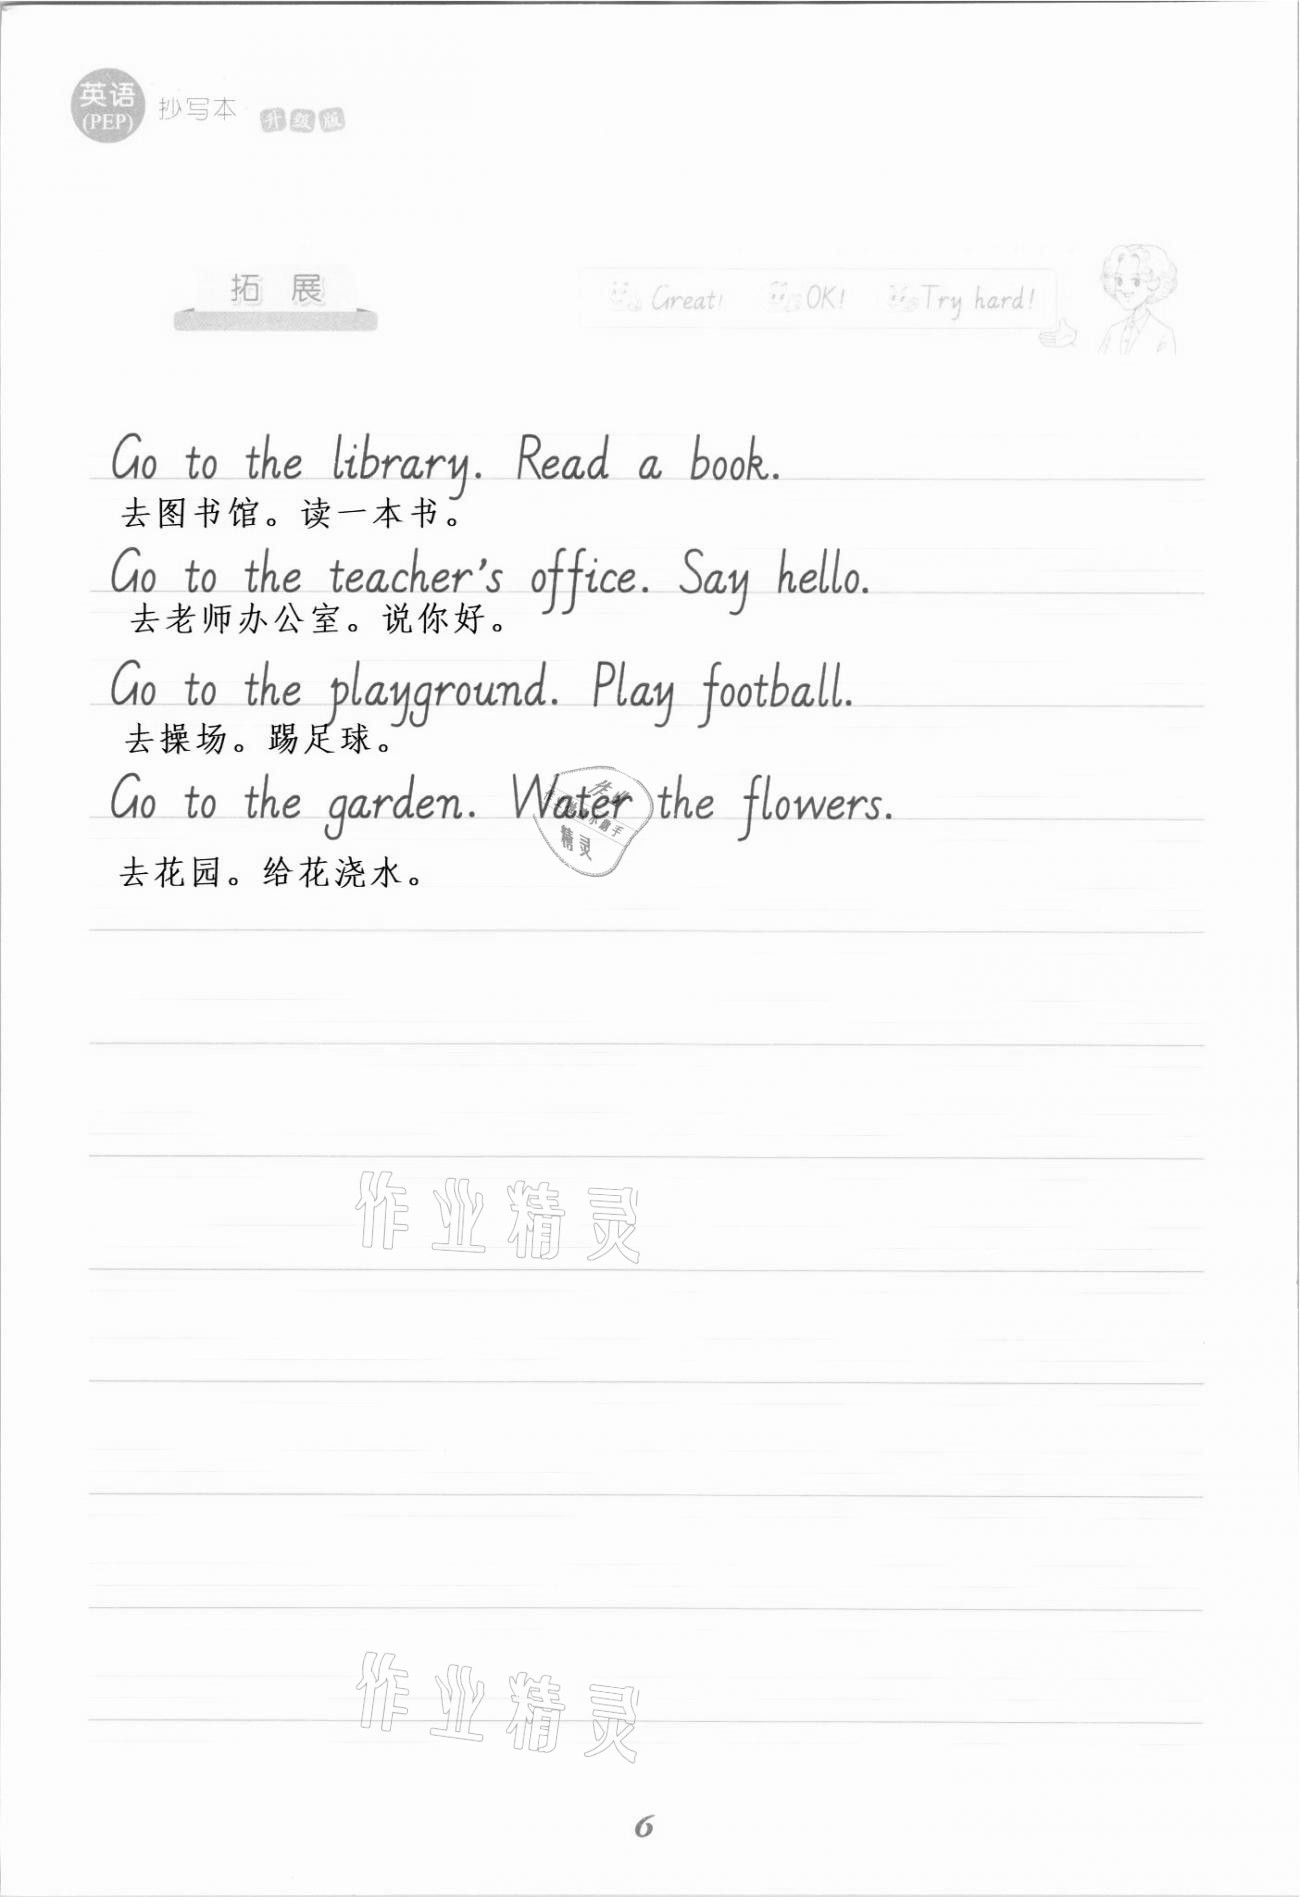 英语
(PEP)
抄写本 升级版
拓展
Great! OK! Try hard!
Go to the library. Read a book.
去图书馆。读一本书。
Go to the teacher's office. Say hello.
去老师办公室。说你好。
Go to the playground. Play football.
去操场。踢足球。
Go to the garden. Water the flowers.
作业
精灵
去花园。给花浇水。
作业精灵
作业精灵
6